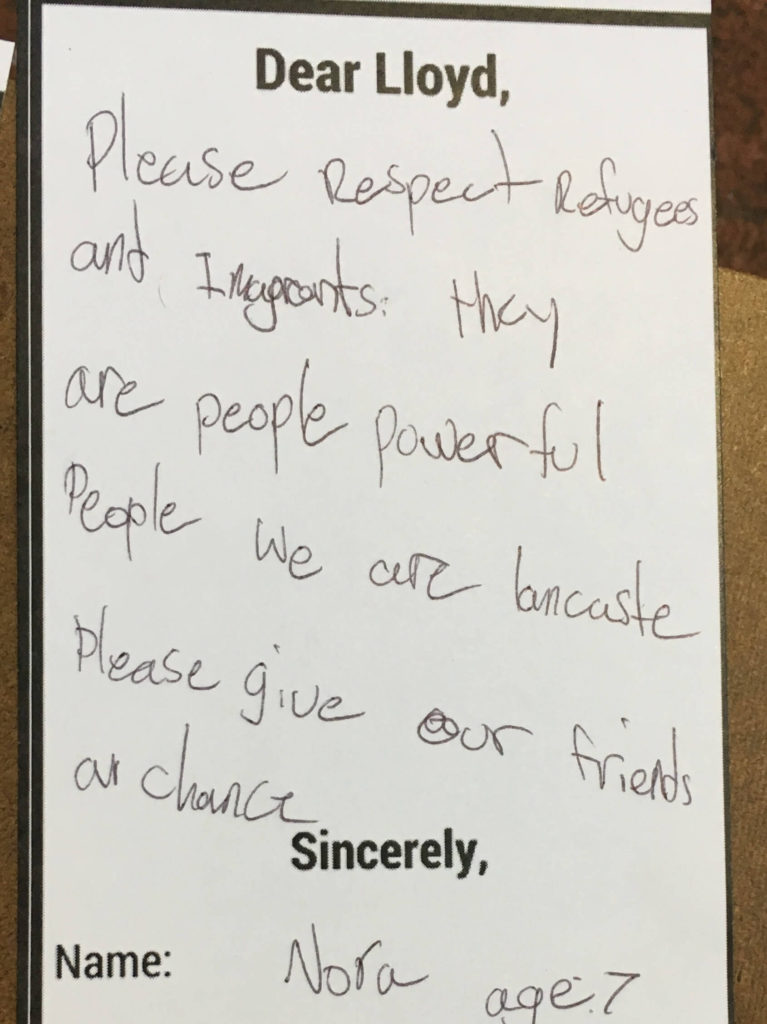 Dear Lloyd,
Please Respect Refugees
and Imagrants: they
are people powerful
People We are lancaste
Please give our friends
a chance
Sincerely,
Name: Nora age:7